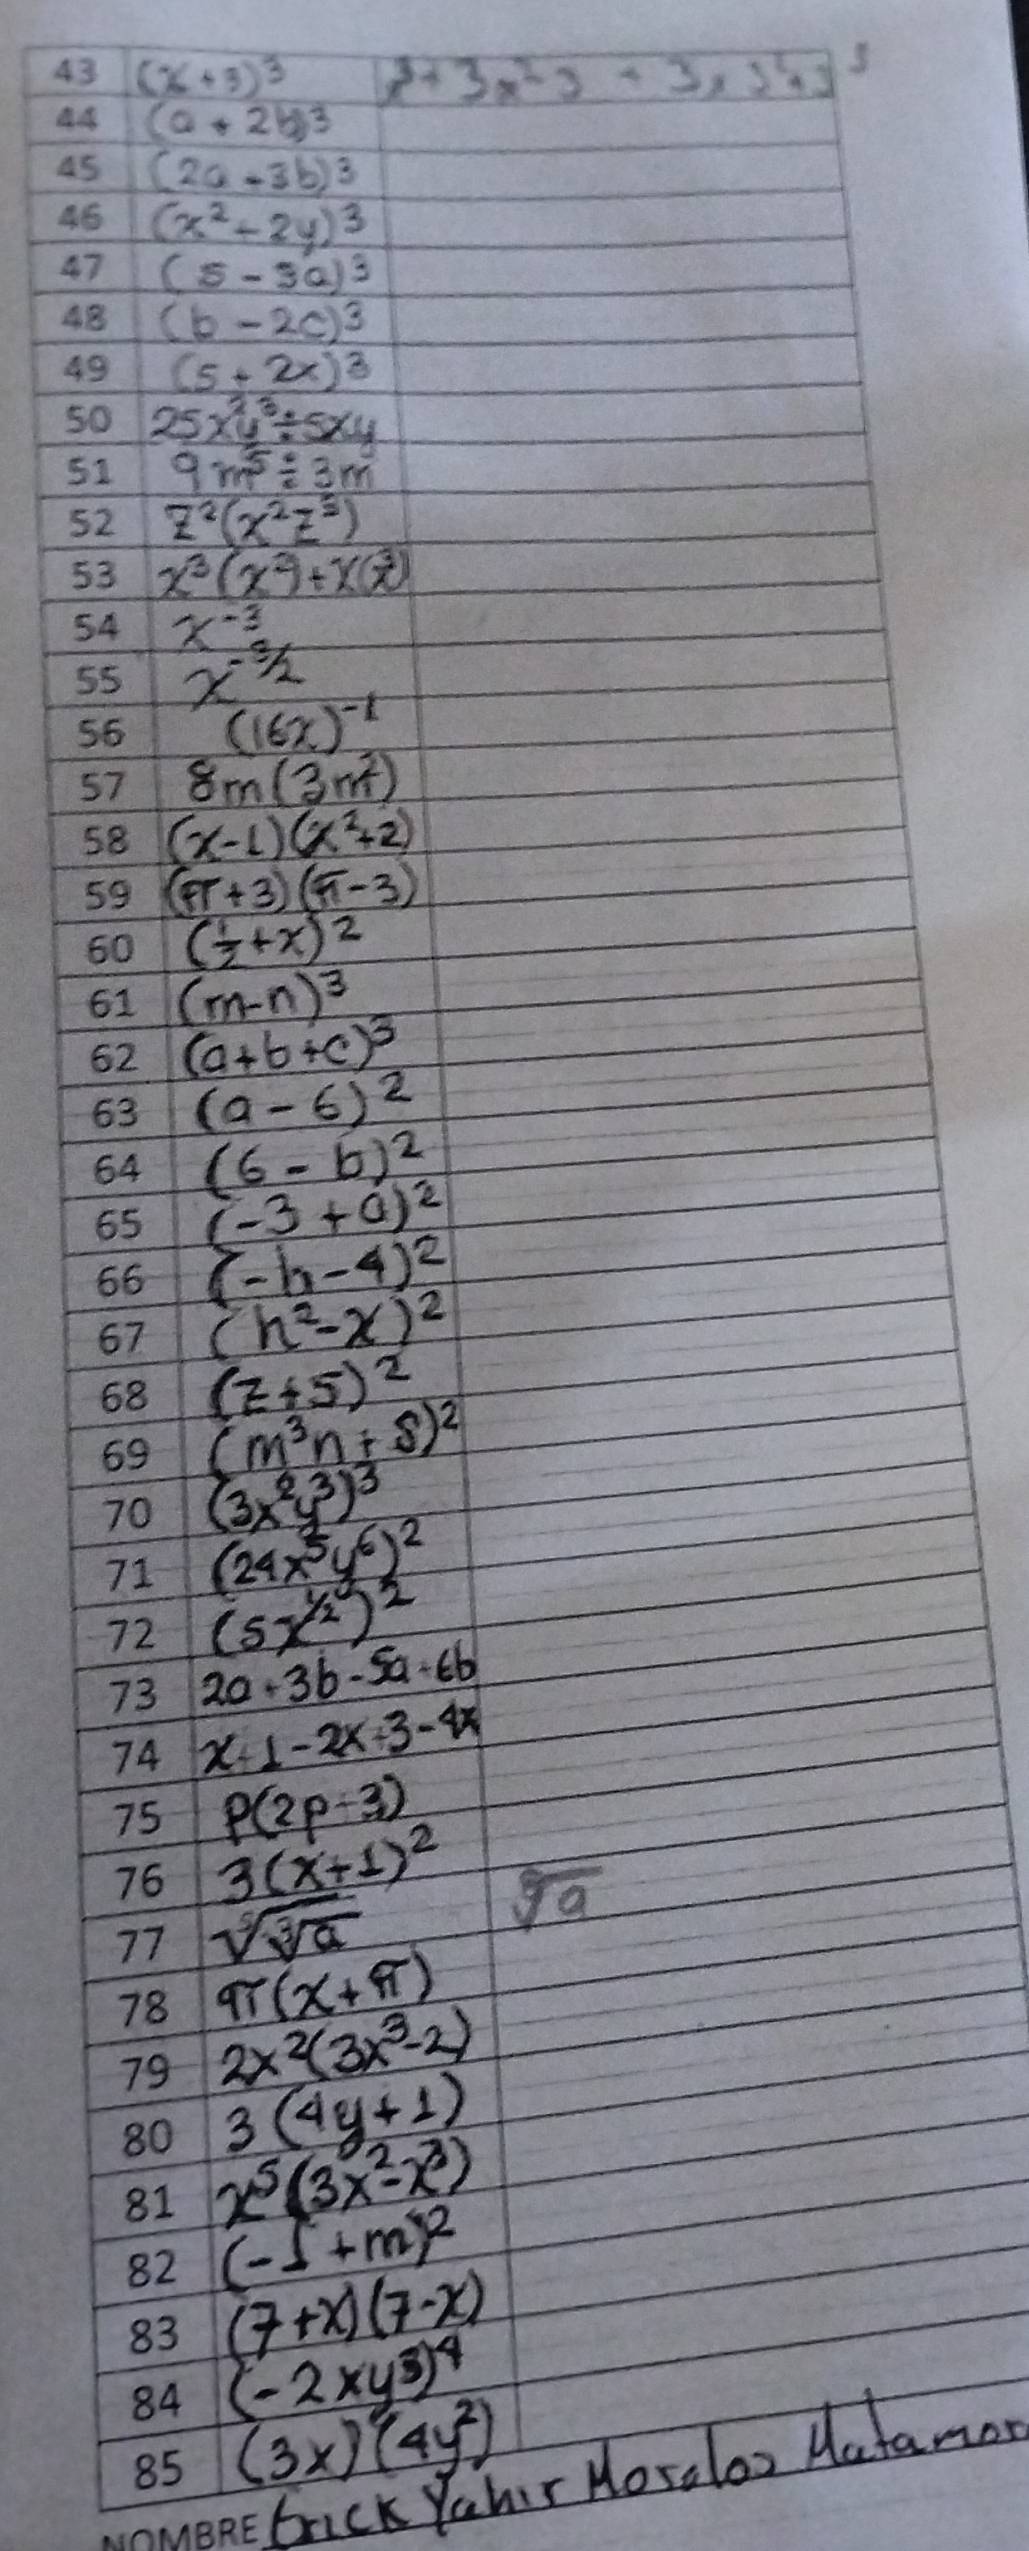 43 (x+3)³ x³+3x²·3 + 3x 3²+3³
44 (a+2b)3
45 (2a-3b)3
46 (x²-2y)3
47 (5-3a)3
48 (b-2c)3
49 (5+2x)3
50 25x²y³÷5xy
51 9m⁵÷3m
52 z²(x²z³)
53 x³(x²)+x(x³)
54 x⁻³
55 x^-3/2
56 (16x)⁻¹
57 8m(3m²)
58 (x-1)(x²+2)
59 (π+3)(π-3)
60 (½+x)²
61 (m-n)³
62 (a+b+c)³
63 (a-6)²
64 (6-b)²
65 (-3+a)²
66 (-h-4)²
67 (h²-x)²
68 (z+5)²
69 (m³n+8)²
70 (3x²y³)³
71 (24x⁵y⁶)²
72 (5x^1/2)²
73 2a+3b-5a+6b
74 x+1-2x+3-4x
75 p(2p-3)
76 3(x+1)²
77 √∛a √a
78 π(x+π)
79 2x²(3x³-2)
80 3(4y+1)
81 x⁵(3x²-x³)
82 (-1+m)²
83 (7+x)(7-x)
84 (-2xy³)⁴
85 (3x)(4y²)
NOMBRE Erick Yahir Morales Matamor